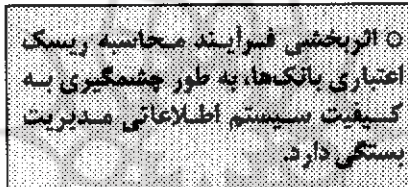 ○ اثربخشی فرآیند محاسبه ریسک
اعتباری بانک‌ها، به طور چشمگیری به
کیفیت سیستم اطلاعاتی مدیریت
بستگی دارد.